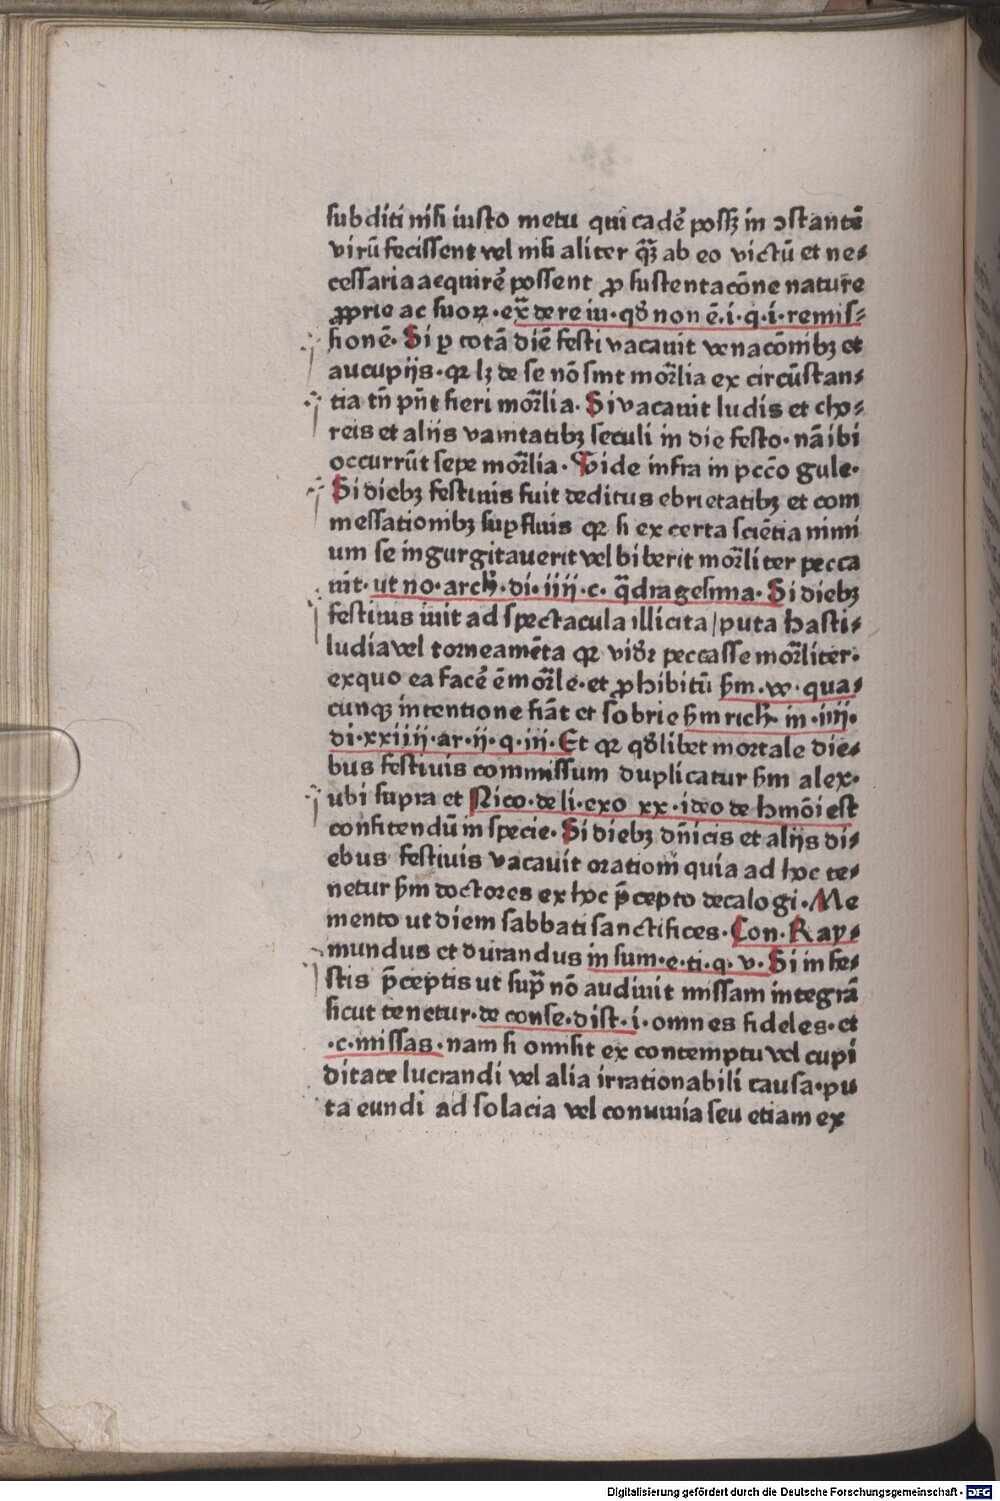 subditi nisi iusto metu qui cadẽ possꝫ in ↄstantẽ
virũ fecissent vel nisi aliter q̃ꝫ ab eo victũ et ne⸗
cessaria acquirẽ possent ꝓ sustentacõne nature
ꝓprie ac suoꝝ · ex̃ de re iu · qđ non ẽ · i · q · i · remis⸗
sionẽ · Si ꝑ totã diẽ festi vacauit venacõnibꝫ et
aucupijs · qꝛ lꝫ de se nõ sint mor̃lia ex circũstan⸗
tia tñ pñt fieri mor̃lia · Si vacauit ludis et cho⸗
reis et aliis vanitatibꝫ seculi in die festo · nã ibi
occurrũt sepe mor̃lia · Vide infra in pccõ gule ·
Si diebꝫ festiuis fuit deditus ebrietatibꝫ et com
messationibꝫ suꝑfluis qꝛ si ex certa sciẽtia nimi
um se ingurgitauerit vel biberit mor̃liter pecca
uit · ut no · arch̃ · di · iiij · c · q̃dragesima · Si diebꝫ
festiuis iuit ad spectacula illicita / puta hasti⸗
ludia vel torneamẽta qꝛ vidr̃ peccasse mor̃liter ·
exquo ea facẽ ẽ mor̃le · et ꝓhibitũ ẜm · ve · qua⸗
cunqꝫ intentione fiãt et sobrie ẜm rich̃ · in · iiij ·
di · xxiiij · ar · ij · q · iij · Et qꝛ qđlibet mortale die⸗
bus festiuis commissum duplicatur ẜm alex ·
ubi supra et Nico · de li · exo xx · ideo de hmõi est
confitendũ in specie · Si diebꝫ dñicis et alijs di⸗
ebus festiuis vacauit orationi quia ad hoc te⸗
netur ẜm doctores ex hoc p̃cepto decalogi · Me
mento ut diem sabbati sanctifices · Con · Ray⸗
mundus et durandus in sum · e · ti · q · v · Si in fe⸗
stis p̃ceptis ut sup̃ nõ audiuit missam integrã
sicut tenetur · de conse · dist · i · omnes fideles · et
· c · missas · nam si omisit ex contemptu vel cupi
ditate lucrandi vel alia irrationabili causa · pu
ta eundi ad solacia vel conuiuia seu etiam ex
Digitalisierung gefördert durch die Deutsche Forschungsgemeinschaft - DFG